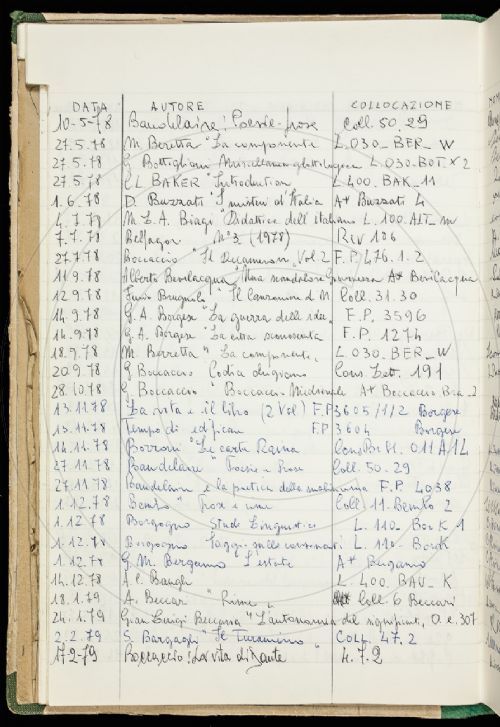 DATA AUTORE COLLOCAZIONE
10-5-78 Baudelaire: Poesie-prose Coll. 50.29
27.5.78 M. Beretta "La componente L.030_BER_W
27.5.78 G. Bottiglioni Miscellanea L.030_BOT_X2
27.5.78 E.L. BAKER "Introduction L 400_BAK_11
1.6.78 D. Buzzati "I misteri d'Italia A* Buzzati 4
4.7.78 M.L.A. Biagi "Didattica dell'italiano L.100_ALT_m
7.7.78 Belfagor N° 3 (1978) Riv 106
27.7.78 Boccaccio "Il Decameron, Vol 2 F.P 476.1.2
11.9.78 Alberto Bevilacqua "Una scandalosa giovinezza A* Bevilacqua
12.9.78 Furio Brugnolo " Il Canzoniere di N Coll. 31.30
14.9.78 G.A. Borgese "La guerra delle idee, F.P. 3596
14.9.78 G.A. Borgese "La città sconosciuta F.P. 1274
18.9.78 M. Berretta " La componente, L 030_BER_W
20.9.78 G Boccaccio Cons. Lett. 191
28.10.78 G Boccaccio " Boccaccio Medievale A* Boccaccio Bra_2
13.11.78 "La vita e il libro (2 Vol) F.P 3605/1/2 Borgese
13.11.78 Tempo di edificare F.P 3604 Borgese
14.11.78 Bozzoni "Le carte Raina Cons Bibl. 011 A/14
27.11.78 Baudelaire " Poesie e Prose Coll. 50-29
27.11.78 Baudelaire e la poetica della malinconia F.P. 4038
1.12.78 Bembo " Prose e rime Coll 11-Bembo 2
1.12.78 Borgogno Studi Linguistici L. 110_Bork 1
1.12.78 Borgogno Saggi sulle consonanti L. 110_Bork
1.12.78 G.M. Bergamo "L'estate A* Bergamo
14.12.78 A.C. Baugh L. 400_BAU_K
18.1.79 A. Beccari "Rime " Coll. 6 Beccari
24.1.79 Gian Luigi Beccaria "L'autonomia del significante, O.e. 307
2.2.79 S. Bargagli "Il Turamino " COLL. 47.2
17-2-79 Boccaccio: La vita di Dante 4.7.2